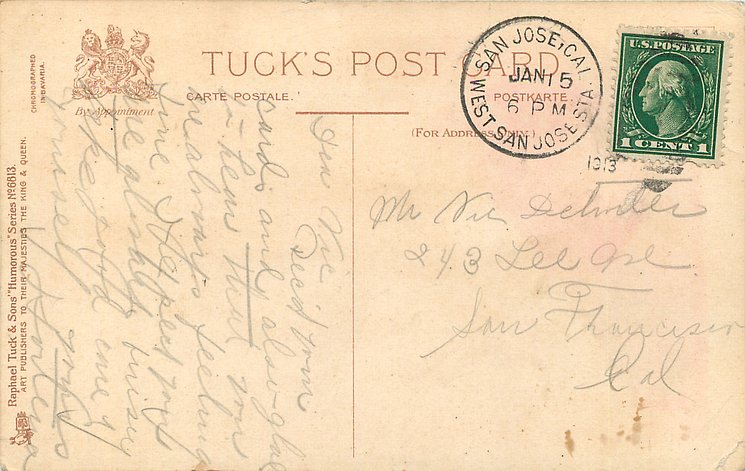 TUCK'S POST CARD
CARTE POSTALE.
POSTKARTE.
By Appointment
(For Address Only.)
CHROMOGRAPHED
IN BAVARIA.
Raphael Tuck & Sons' "Humorous" Series No 6813.
ART PUBLISHERS TO THEIR MAJESTIES THE KING & QUEEN.
SAN JOSE, CAL.
JAN 15
6 PM
WEST SAN JOSE STA.
1913
U.S. POSTAGE
1 CENT 1
Mr Vic
243 Lee Ave
San Francisco
Cal
Dear Vic
Rec'd your
card and also glad
to hear
always feeling
fine I expect you
are
take good care of
yourself yours